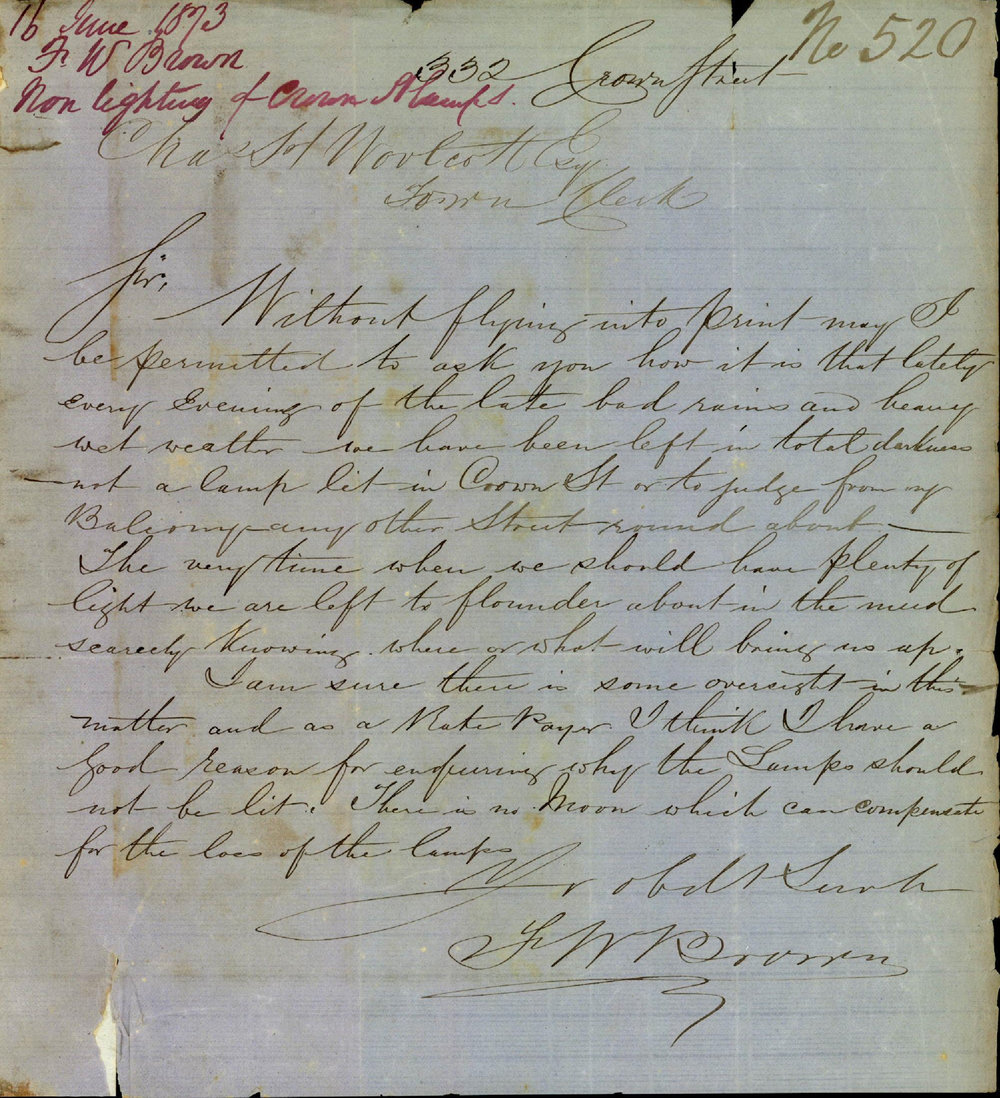 16 June 1873
Fr W Brown
Non lighting of Crown St Lamps.
No 520
332 Crown Street
Chas H Woolcott Esq
Town Clerk
Sir,
Without flying into print may I
be permitted to ask you how it is that lately
every Evening of the late bad rains and heavy
wet weather we have been left in total darkness
not a lamp lit in Crown St or to judge from my
Balcony any other Street round about —
The very time when we should have plenty of
light we are left to flounder about in the mud
scarcely Knowing where or what will bring us up.
I am sure there is some oversight in this
matter and as a Rate Payer I think I have a
good reason for enquiring why the Lamps should
not be lit. There is no Moon which can compensate
for the loss of the lamps
Yr obdt Servt
Fr W Brown